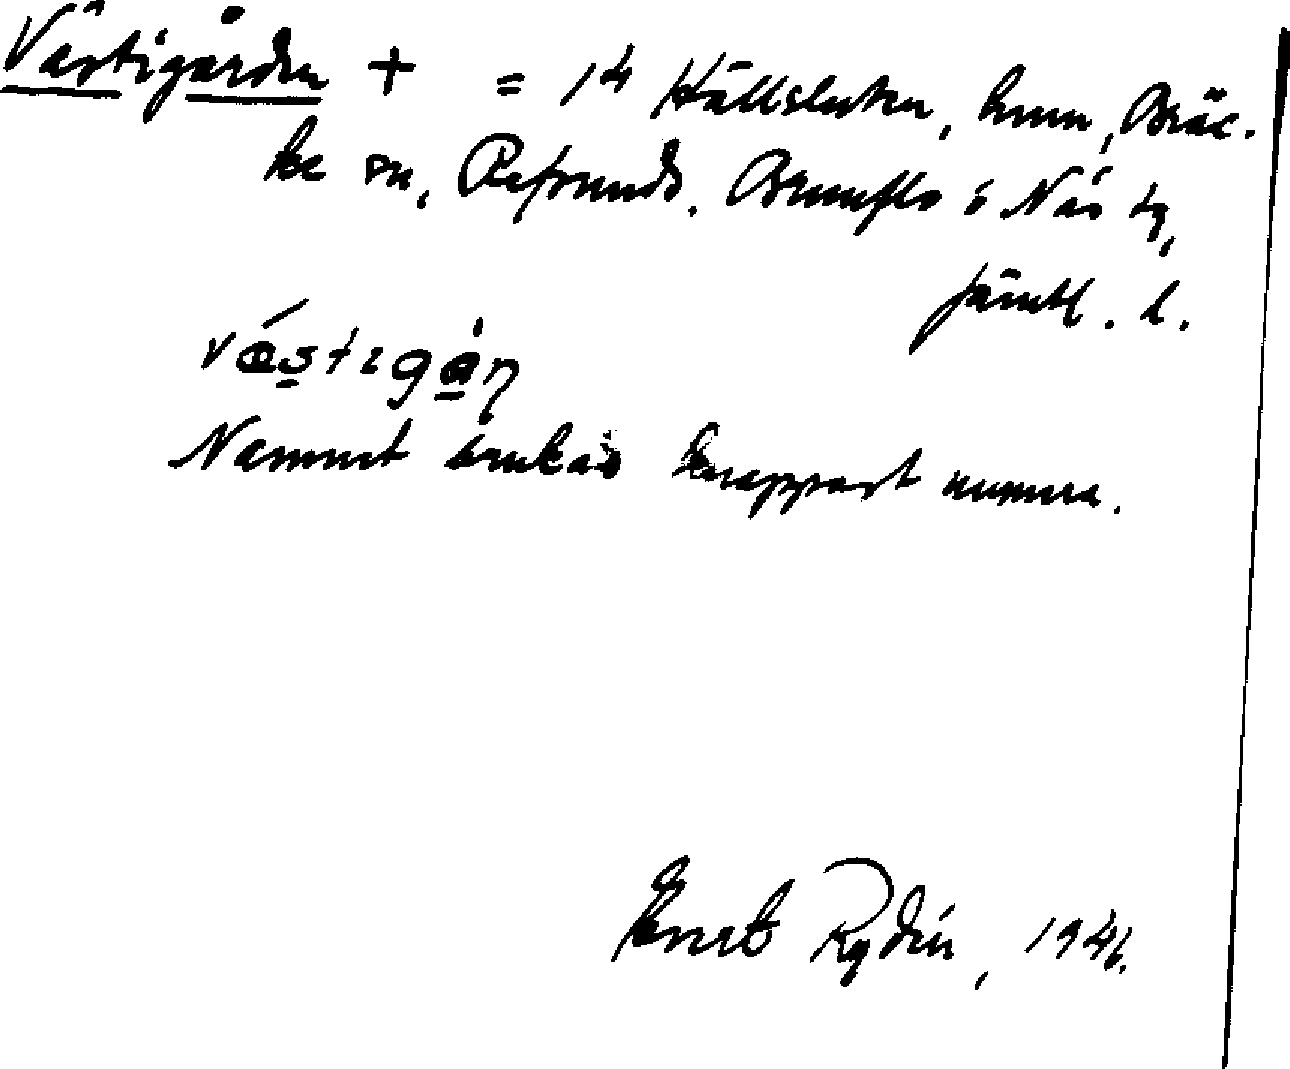 Västigården + = 14 Hällsluten, hmn, Bräc-
ke sn, Refsunds, Brunflo o Näs tg,
Jämtl. l.
vǽstɪgåɳ
Namnet brukas knappast numera.
Ernst Rydén, 1941.